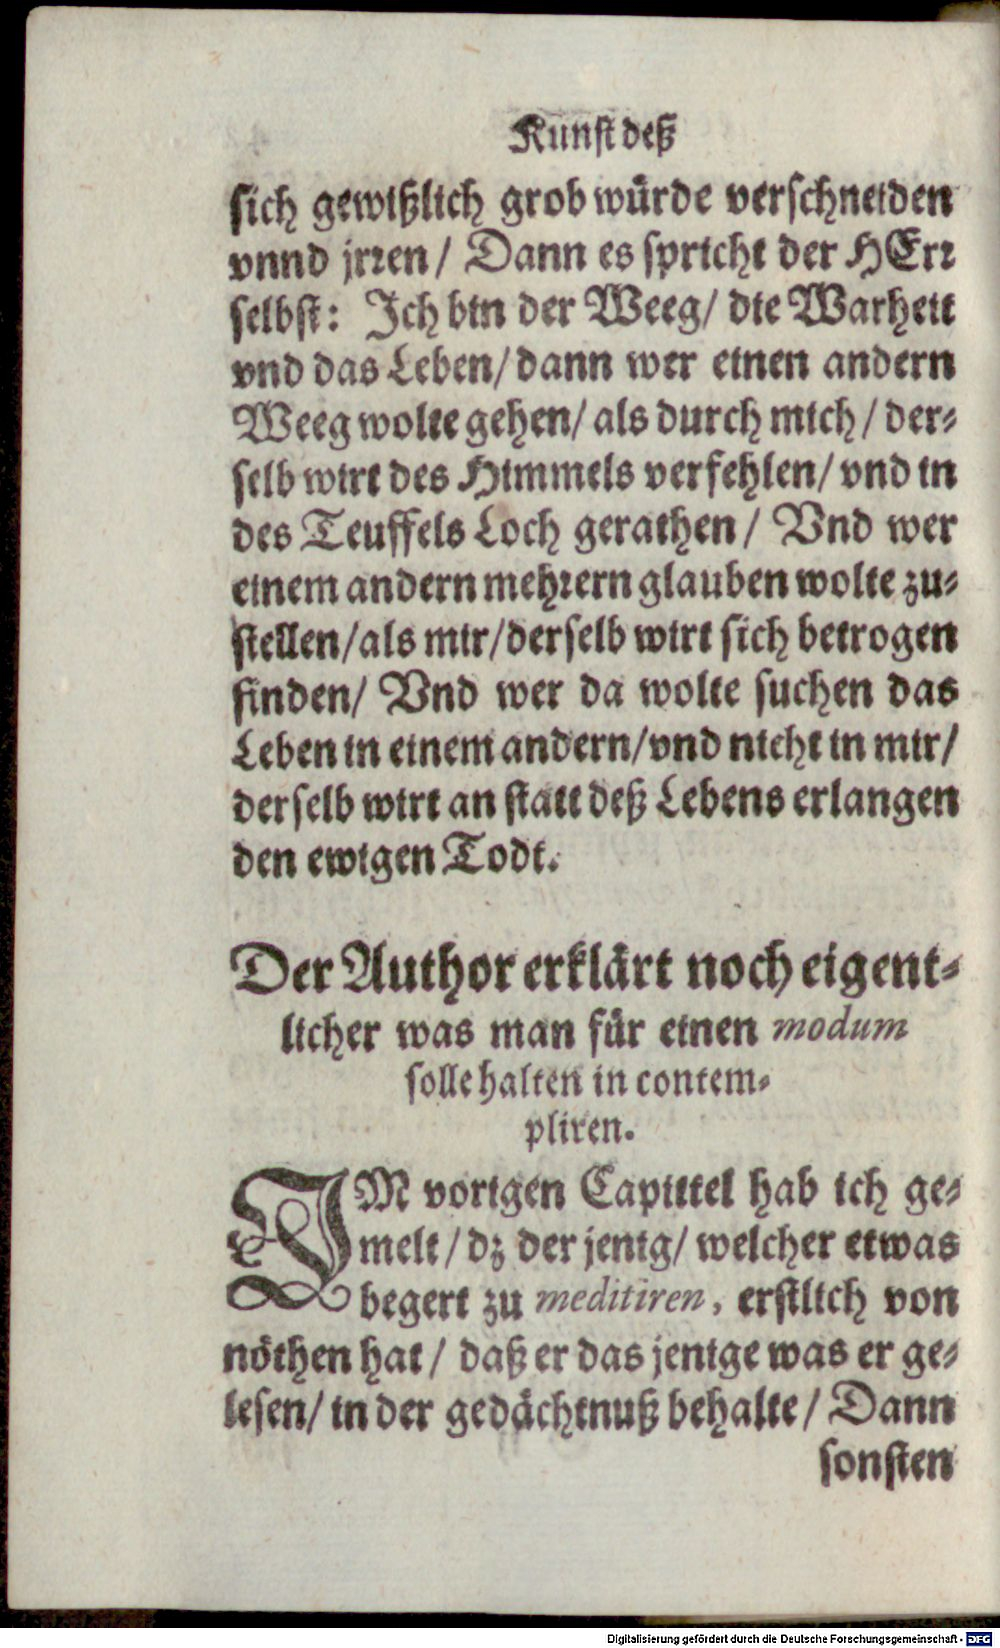 Kunst deß
sich gewißlich grob würde verschneiden
vnnd jrren / Dann es spricht der HErr
selbst: Ich bin der Weeg / die Warheit
vnd das Leben / dann wer einen andern
Weeg wolte gehen / als durch mich / der-
selb wirt des Himmels verfehlen / vnd in
des Teuffels Loch gerathen / Vnd wer
einem andern mehrern glauben wolte zu-
stellen / als mir / derselb wirt sich betrogen
finden / Vnd wer da wolte suchen das
Leben in einem andern / vnd nicht in mir /
derselb wirt an statt deß Lebens erlangen
den ewigen Todt.
Der Author erklärt noch eigent-
licher was man für einen modum
solle halten in contem-
pliren.
IM vorigen Capittel hab ich ge-
melt / dz der jenig / welcher etwas
begert zu meditiren, erstlich von
nöthen hat / daß er das jenige was er ge-
lesen / in der gedächtnuß behalte / Dann
sonsten
Digitalisierung gefördert durch die Deutsche Forschungsgemeinschaft - DFG